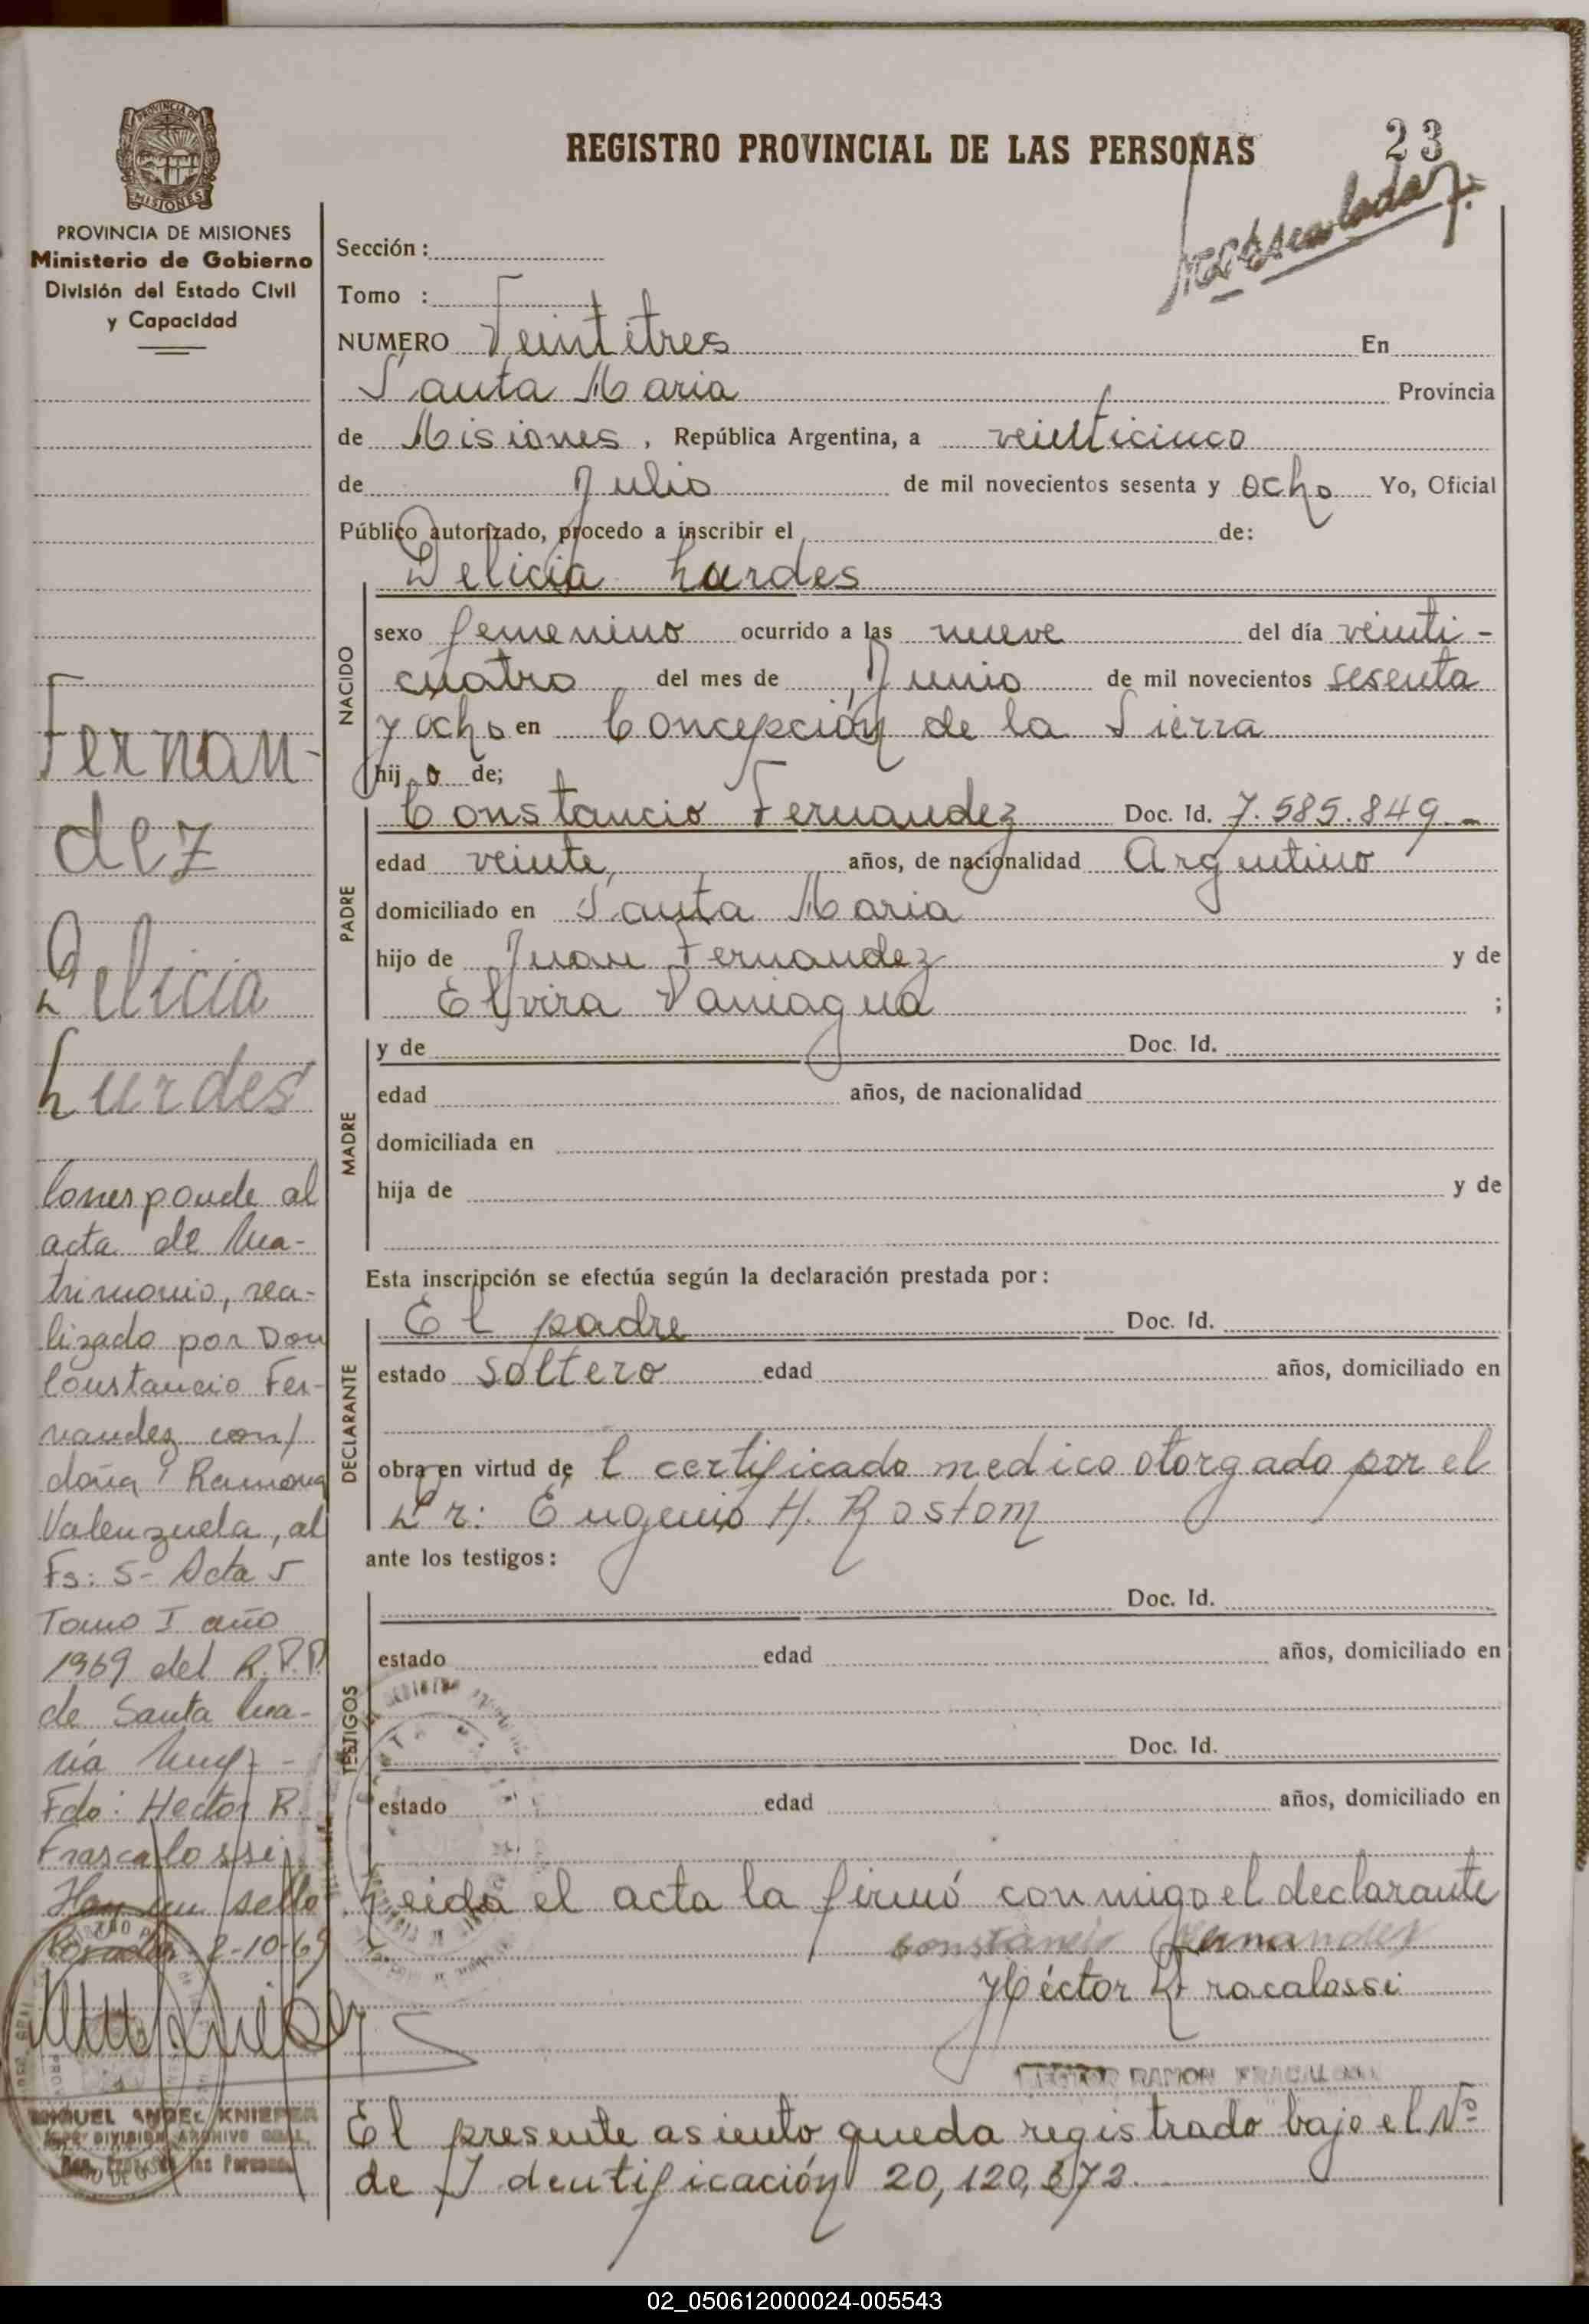 REGISTRO PROVINCIAL DE LAS PERSONAS
23
PROVINCIA DE MISIONES
MISIONES
PROVINCIA DE MISIONES
Ministerio de Gobierno
División del Estado Civil
y Capacidad
Fernan-
dez
Delicia
Lurdes
Corresponde al
acta de Ma-
trimonio, rea-
lizado por Don
Constancio Fer-
nandez con/
doña Ramona
Valenzuela, al
Fs: 5- Acta 5
Tomo I año
1969 del R.P.P.
de Santa Ma-
ría
Fdo: Hector R.
Fracalossi
Hay un sello
2-10-69
MIGUEL ANGEL KNIEPER
DIVISION ARCHIVO GRAL.
las Personas
Sección :
Tomo :
NUMERO Veintitres En
Santa Maria Provincia
de Misiones, República Argentina, a veinticinco
de Julio de mil novecientos sesenta y ocho Yo, Oficial
Público autorizado, procedo a inscribir el de:
Delicia Lurdes
NACIDO
sexo femenino ocurrido a las nueve del día veinti-
cuatro del mes de Junio de mil novecientos sesenta
y ocho en Concepción de la Sierra
hij o de;
PADRE
Constancio Fernandez Doc. Id. 7.585.849.-
edad veinte, años, de nacionalidad Argentino
domiciliado en Santa Maria
hijo de Juan Fernandez y de
Elvira Paniagua ;
MADRE
y de Doc. Id.
edad años, de nacionalidad
domiciliada en
hija de y de
Esta inscripción se efectúa según la declaración prestada por:
DECLARANTE
El padre Doc. Id.
estado soltero edad años, domiciliado en
obra en virtud de l certificado medico otorgado por el
Dr: Eugenio H. Rostom
ante los testigos:
TESTIGOS
Doc. Id.
estado edad años, domiciliado en
Doc. Id.
estado edad años, domiciliado en
Leida el acta la firmó conmigo el declarante
Constancio Fernandez
Héctor R Fracalossi
HECTOR RAMON FRACALOSSI
El presente asiento queda registrado bajo el Nº
de Identificación 20,120,372.
02_050612000024-005543